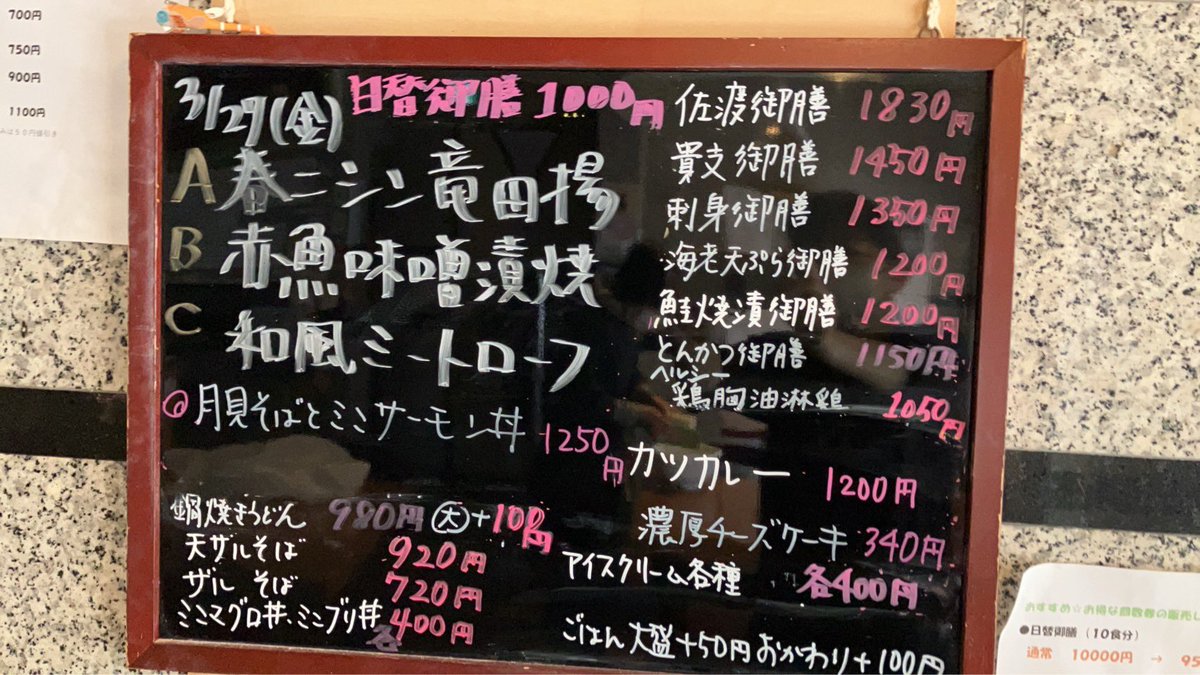 700円
750円
900円
1100円
3/29(金)
日替御膳 1000円
A 春ニシン竜田揚
B 赤魚味噌漬焼
C 和風ミートローフ
◎月見そばとミニサーモン丼 1250円
鍋焼きうどん 980円 大+100円
天ザルそば 920円
ザルそば 720円
ミニマグロ丼、ミニブリ丼 各400円
佐渡御膳 1830円
貴支御膳 1450円
刺身御膳 1350円
海老天ぷら御膳 1200円
鮭焼漬御膳 1200円
とんかつ御膳 1150円
ヘルシー
鶏胸油淋鶏 1050円
カツカレー 1200円
濃厚チーズケーキ 340円
アイスクリーム各種 各400円
ごはん大盛+50円 おかわり+100円
●日替御膳(10食分)
通常 10000円 → 95